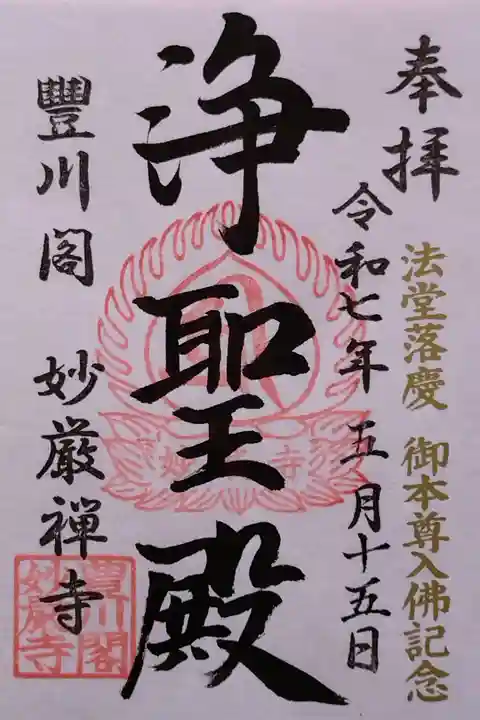 奉拝
法堂落慶 御本尊入佛記念
令和七年 五月十五日
浄聖殿
豐川閣 妙厳禅寺
豐川閣
妙厳寺